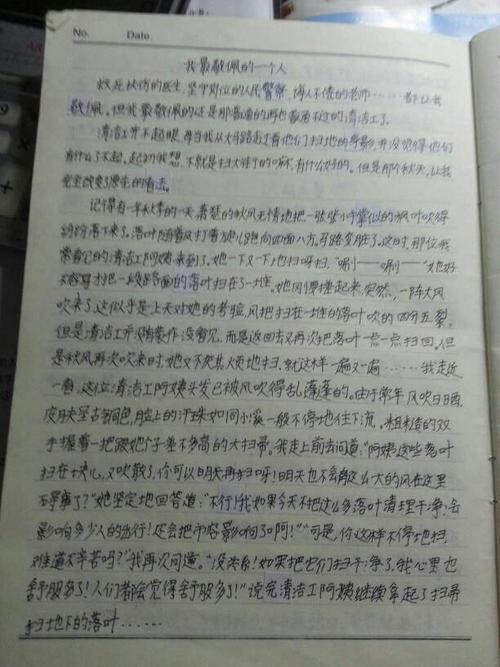 No.  Date.
我最敬佩的一个人
救死扶伤的医生，坚守岗位的人民警察，诲人不倦的老师……都让我
敬佩。但我最敬佩的还是那普通的再也普通不过的清洁工了。
清洁工并不起眼，每当我从大马路走过看他们扫地的身影，并没觉得他们
有什么了不起。起初我想，不就是扫大街的嘛，有什么好的。但是那个秋天，让我
完全改变了原先的看法。
记得有一年秋季的一天，萧瑟的秋风无情地把一张张小手掌似的枫叶吹得
纷纷落下来了。落叶随着风打着旋儿跑向四面八方。马路变脏了。这时，那位我
常看见的清洁工阿姨来到了。她一下又一下地扫呀扫，“唰——唰——”她好
不容易才把一段路面的落叶扫在了一堆。她刚要撮起来，突然，一阵大风
吹来了，这似乎是上天对她的考验，风把扫在一堆的落叶吹的四分五裂。
但是清洁工并没有装作没看见，而是返回去又再次把落叶一点一点扫回。但
是秋风再次吹来时，她又不厌其烦地扫，就这样一遍又一遍……我走近
一看，这位清洁工阿姨头发已被风吹得乱蓬蓬的。由于常年风吹日晒，
皮肤呈古铜色，脸上的汗珠如同小溪一般不停地往下流。粗糙的双
手握着一把跟她个子差不多高的大扫帚。我走上前去问道：“阿姨这些落叶
扫在一块儿，又吹散了，你可以明天再扫呀！明天也不会有这么大的风在这里
石等了？”她坚定地回答道：“不行！我如果今天不把这么多落叶清理干净，会
影响多少人的出行！还会把市容影响了啊！”“可是，你这样不停地扫，
难道不辛苦吗？”我再次问道。“没关系！如果把它们扫干净了，我心里也
舒服多了！人们都会觉得舒服多了！”说完清洁工阿姨继续拿起了扫帚
扫地下的落叶……